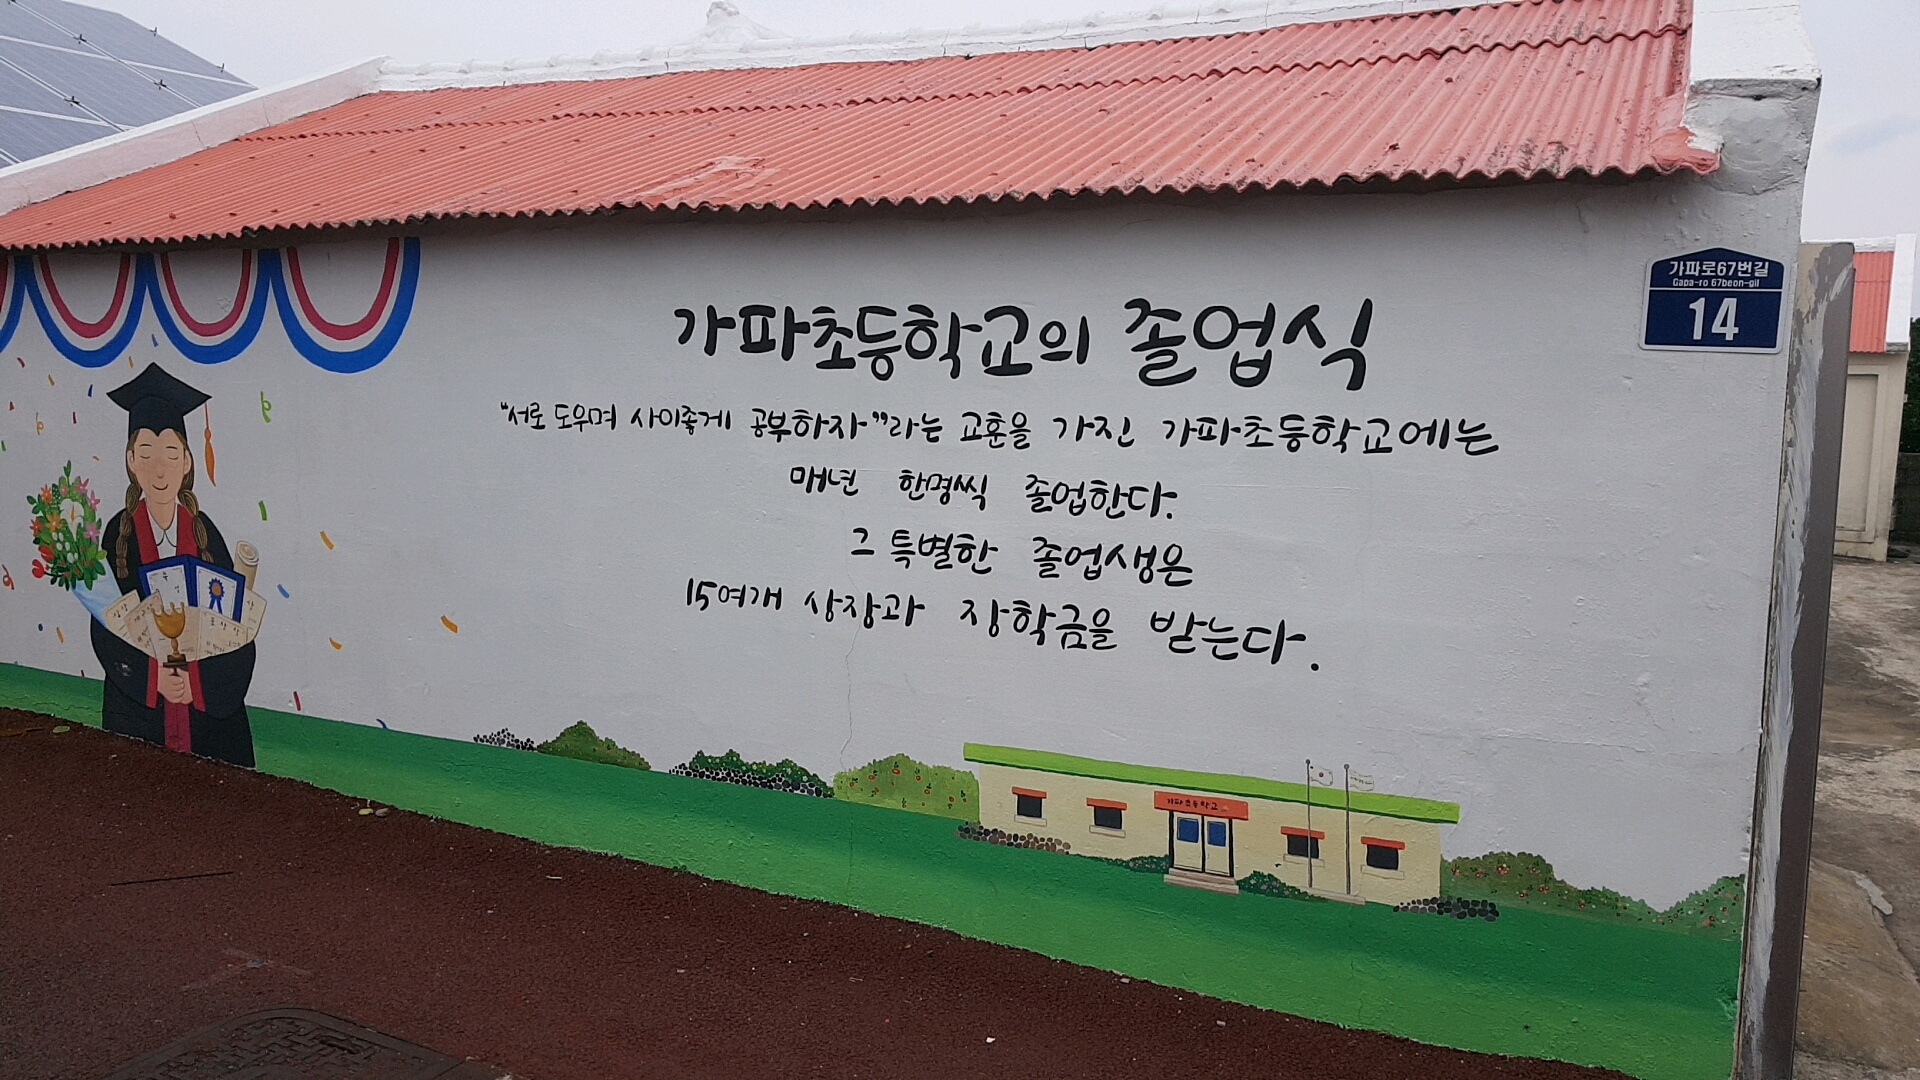 가파초등학교의 졸업식
"서로 도우며 사이좋게 공부하자"라는 교훈을 가진 가파초등학교에는
매년 한명씩 졸업한다.
그 특별한 졸업생은
15여개 상장과 장학금을 받는다.
가파로67번길
Gapa-ro 67beon-gil
14
가파초등학교